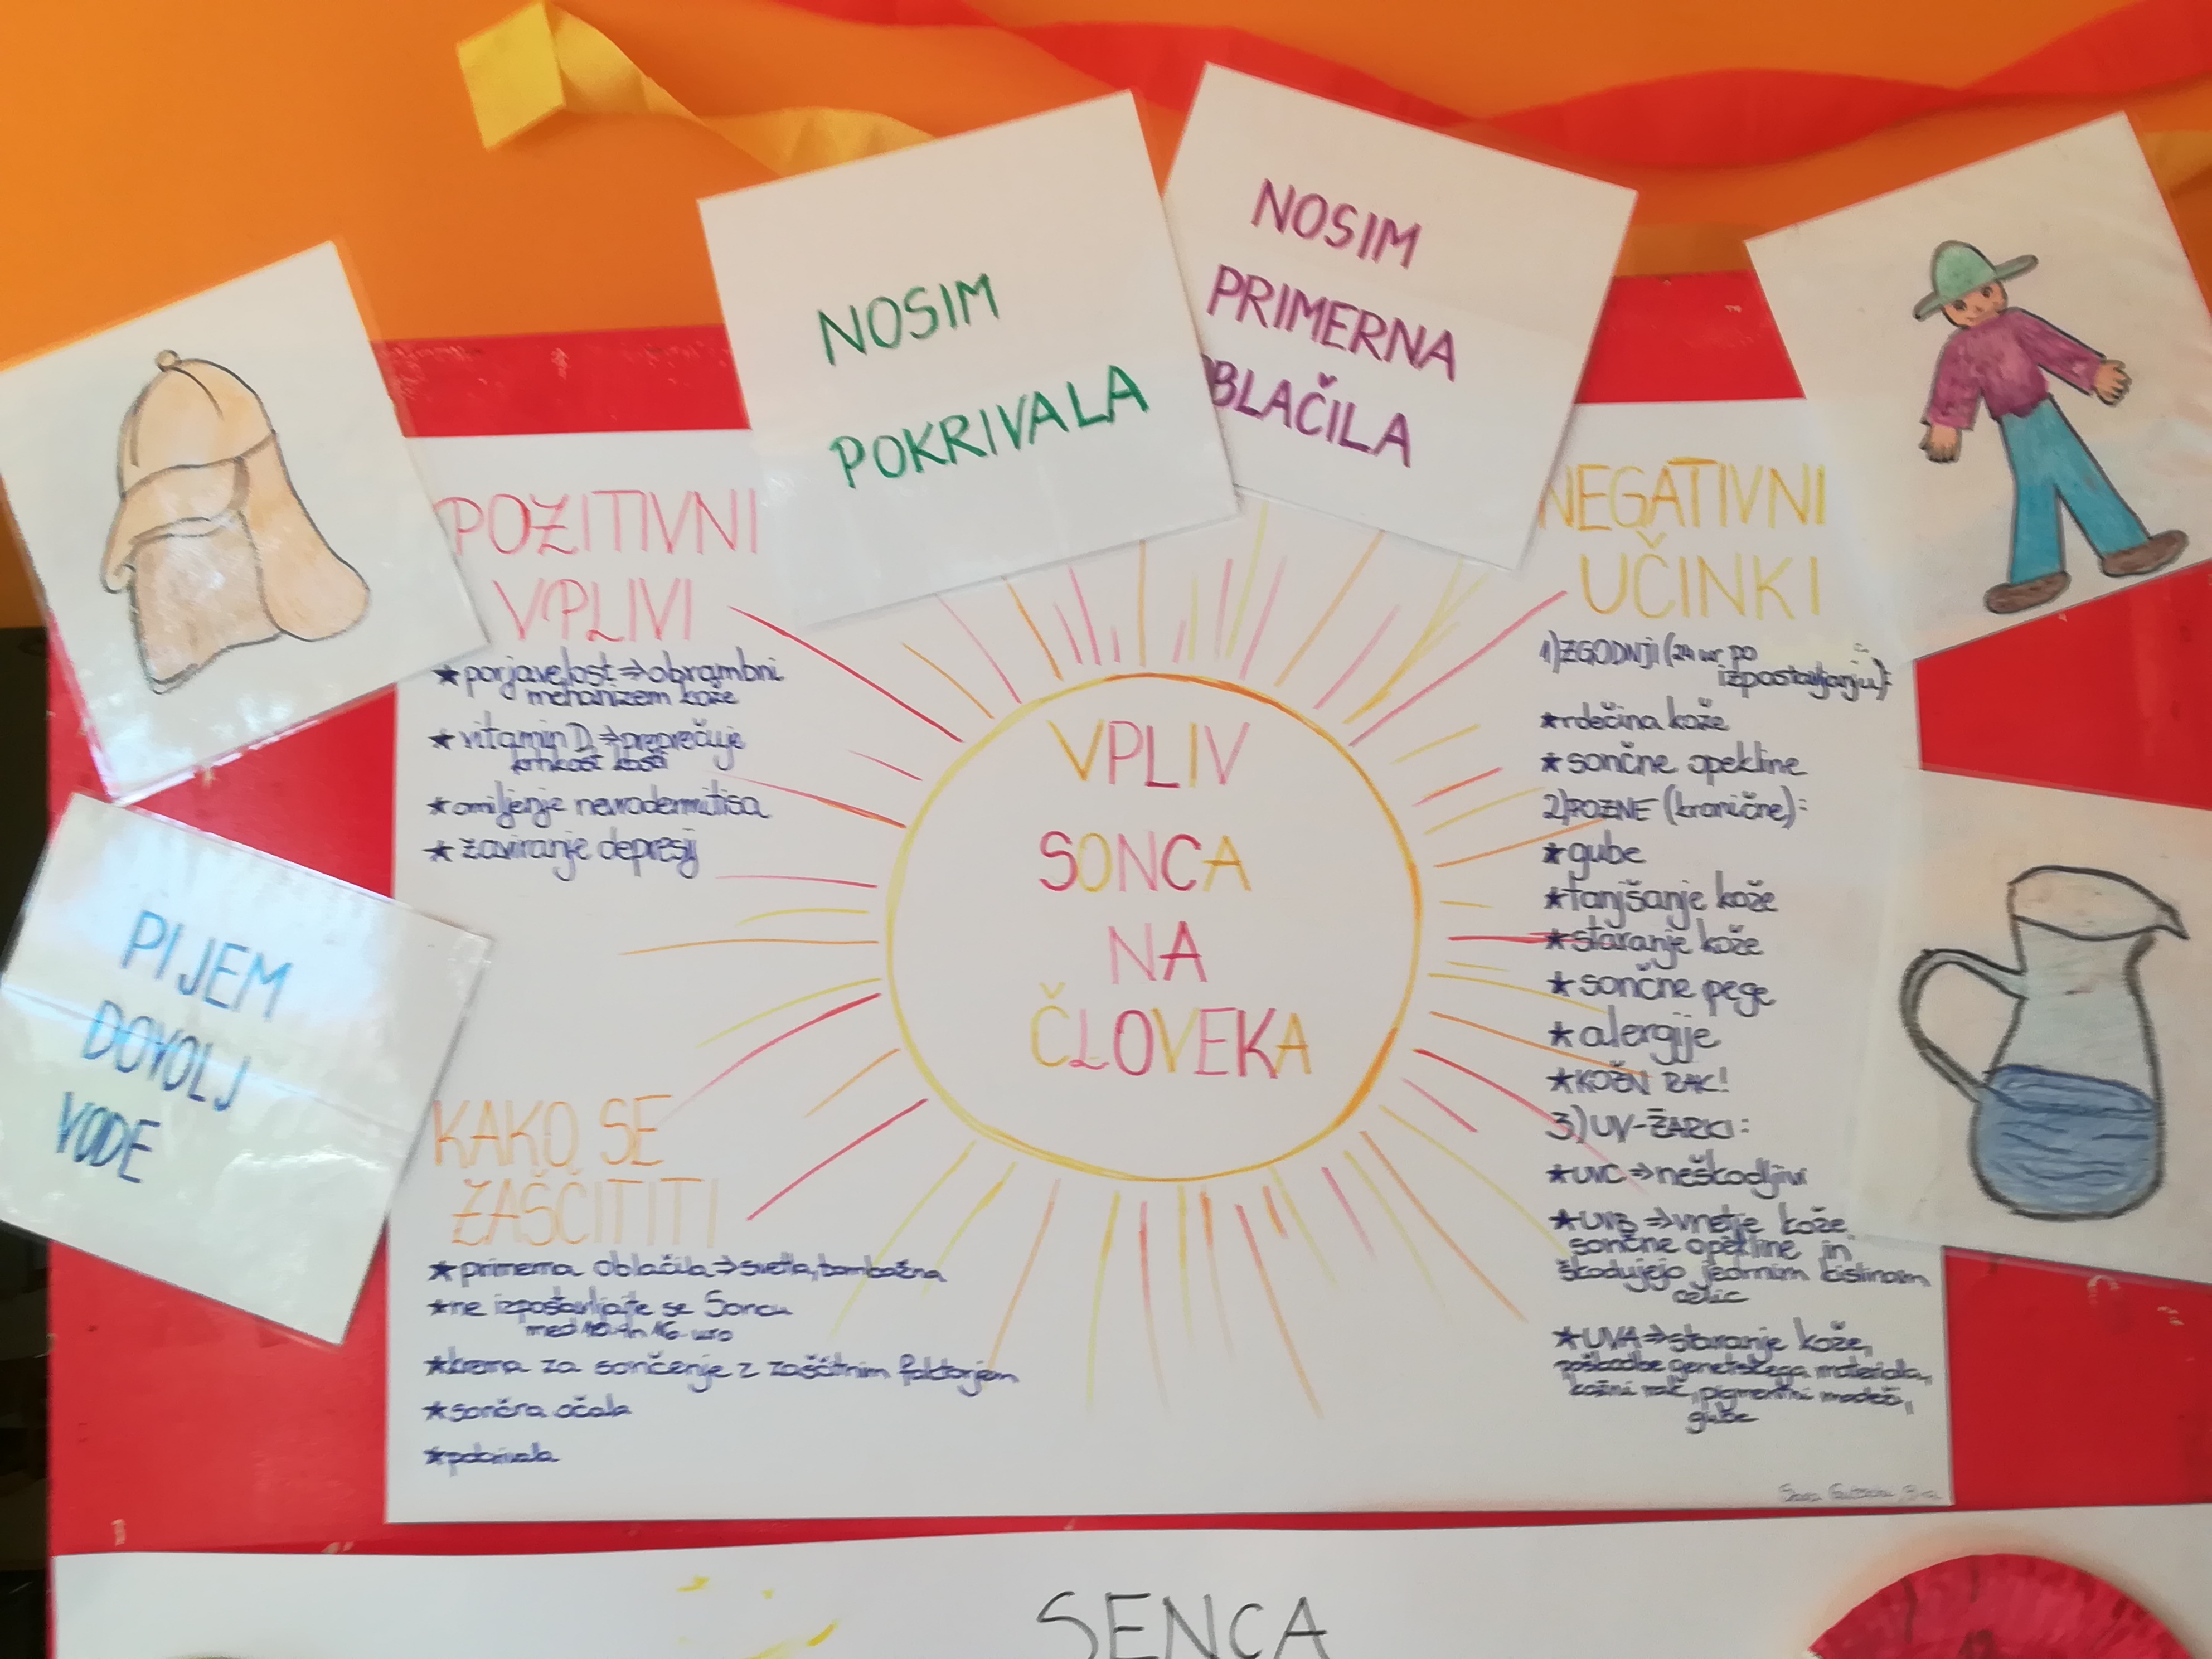 NOSIM
POKRIVALA
NOSIM
PRIMERNA
OBLAČILA
PIJEM
DOVOLJ
VODE
POZITIVNI
VPLIVI
★porjavelost⇒obrambni
mehanizem kože
★vitamin D⇒preprečuje
krhkost kosti
★omiljenje nevrodermitisa
★zaviranje depresij
VPLIV
SONCA
NA
ČLOVEKA
KAKO SE
ZAŠČITITI
★primerna oblačila⇒svetla, bombažna
★ne izpostavljajte se Soncu
med 10. in 16. uro
★krema za sončenje z zaščitnim faktorjem
★sončna očala
★pokrivala
NEGATIVNI
UČINKI
1)ZGODNJI (24 ur po
izpostavljanju):
★rdečina kože
★sončne opekline
2)POZNE (kronične):
★gube
★tanjšanje kože
★staranje kože
★sončne pege
★alergije
★KOŽNI RAK!
3)UV-ŽARKI:
★UVC⇒neškodljivi
★UVB⇒vnetje kože,
sončne opekline in
škodujejo jedrnim kislinam
celic
★UVA⇒staranje kože,
poškodbe genetskega materiala,
kožni rak, pigmentni madeži,
gube
SENCA